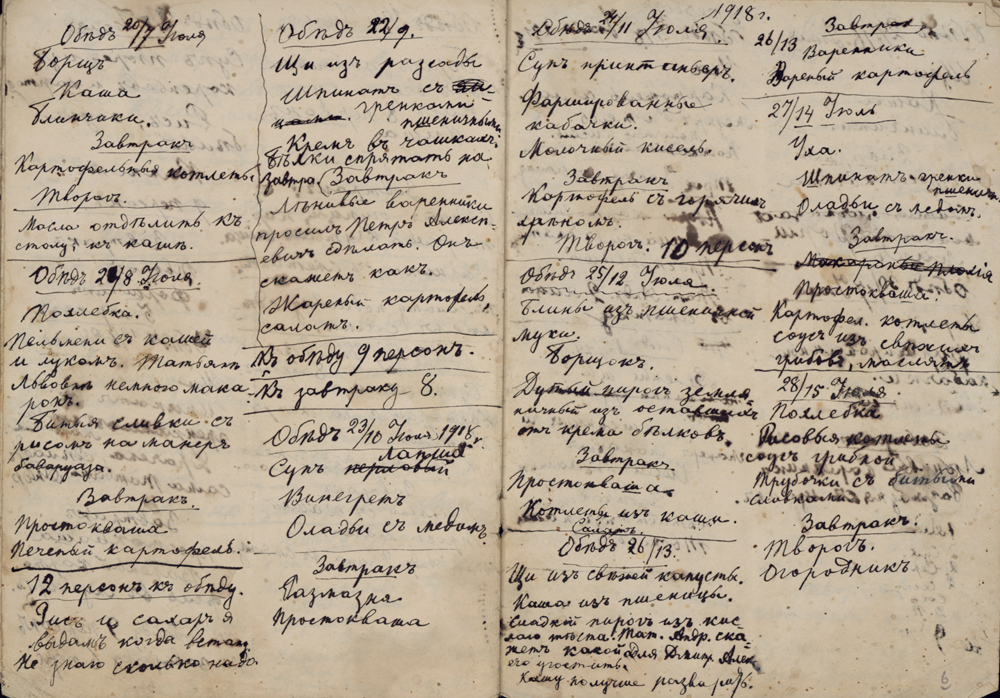 Обѣдъ 20/7 Юоля
Борщъ
Каша
Блинчики.
Завтракъ
Картофельные котлеты
Творогъ.
Масла отдѣлить къ
столу, къ кашѣ.
Обѣдъ 21/8 Юоля.
Похлебка.
Пельмени съ кашей
и лукомъ. Татьянѣ
Львовнѣ немного мака
ронъ.
Битыя сливки съ
рисомъ на манеръ
баваруаза.
Завтракъ.
Простокваша
Печеный картофель.
12 персонъ къ обѣду.
Рисъ и сахаръ я
выдамъ когда встану
Не знаю сколько надо
Обѣдъ 22/9.
Щи изъ разсады
Шпинатъ съ
гренками
пшеничными
Кремъ въ чашкахъ.
Бѣлки спрятать на
завтра (Завтракъ
Лѣнивые варенники
просилъ Петръ Алексѣ-
евичъ сдѣлать. Онъ
скажетъ какъ.
Жареный картофель,
салатъ.
Къ обѣду 9 персонъ.
Къ завтраку 8.
Обѣдъ 23/10 Юоля 1918 г.
лапша
Супъ перловый
Винегретъ
Оладьи съ медомъ.
Завтракъ
Размазня
Простокваша
1918 г.
Обѣдъ 24/11 Юоля.
Супъ принтаньеръ.
Фаршированные
кабачки.
Молочный кисель.
Завтракъ
Картофель съ горячим
хрѣномъ.
Творогъ. 10 персонъ
Обѣдъ 25/12 Юоля.
Блины изъ пшеничной
муки.
Борщокъ.
Дутый пирогъ земля
ничный изъ оставшихъ
отъ крема бѣлковъ.
Завтракъ.
Простокваша
Котлеты изъ каши.
Салатъ
Обѣдъ 26/13.
Щи изъ свѣжей капусты.
Каша изъ пшеницы.
Сладкій пирогъ изъ кис-
лаго тѣста. Тат. Андр. ска
жетъ какой для Дмитр. Алек
его угостить.
Кашу получше разварить.
Завтракъ
26/13
Варенники
Вареный картофель
27/14 Юоль
Уха.
Шпинатъ гренки
пшенич.
Оладьи съ медомъ.
Завтракъ.
Макароны
Простокваша.
Картофел. котлеты
соусъ изъ свѣжихъ
грибовъ, маслятъ
28/15 Юоля.
Похлебка
Рисовыя котлеты
соусъ грибной
Трубочки съ битыми
сливками
Завтракъ.
Творогъ.
Огородникъ
6